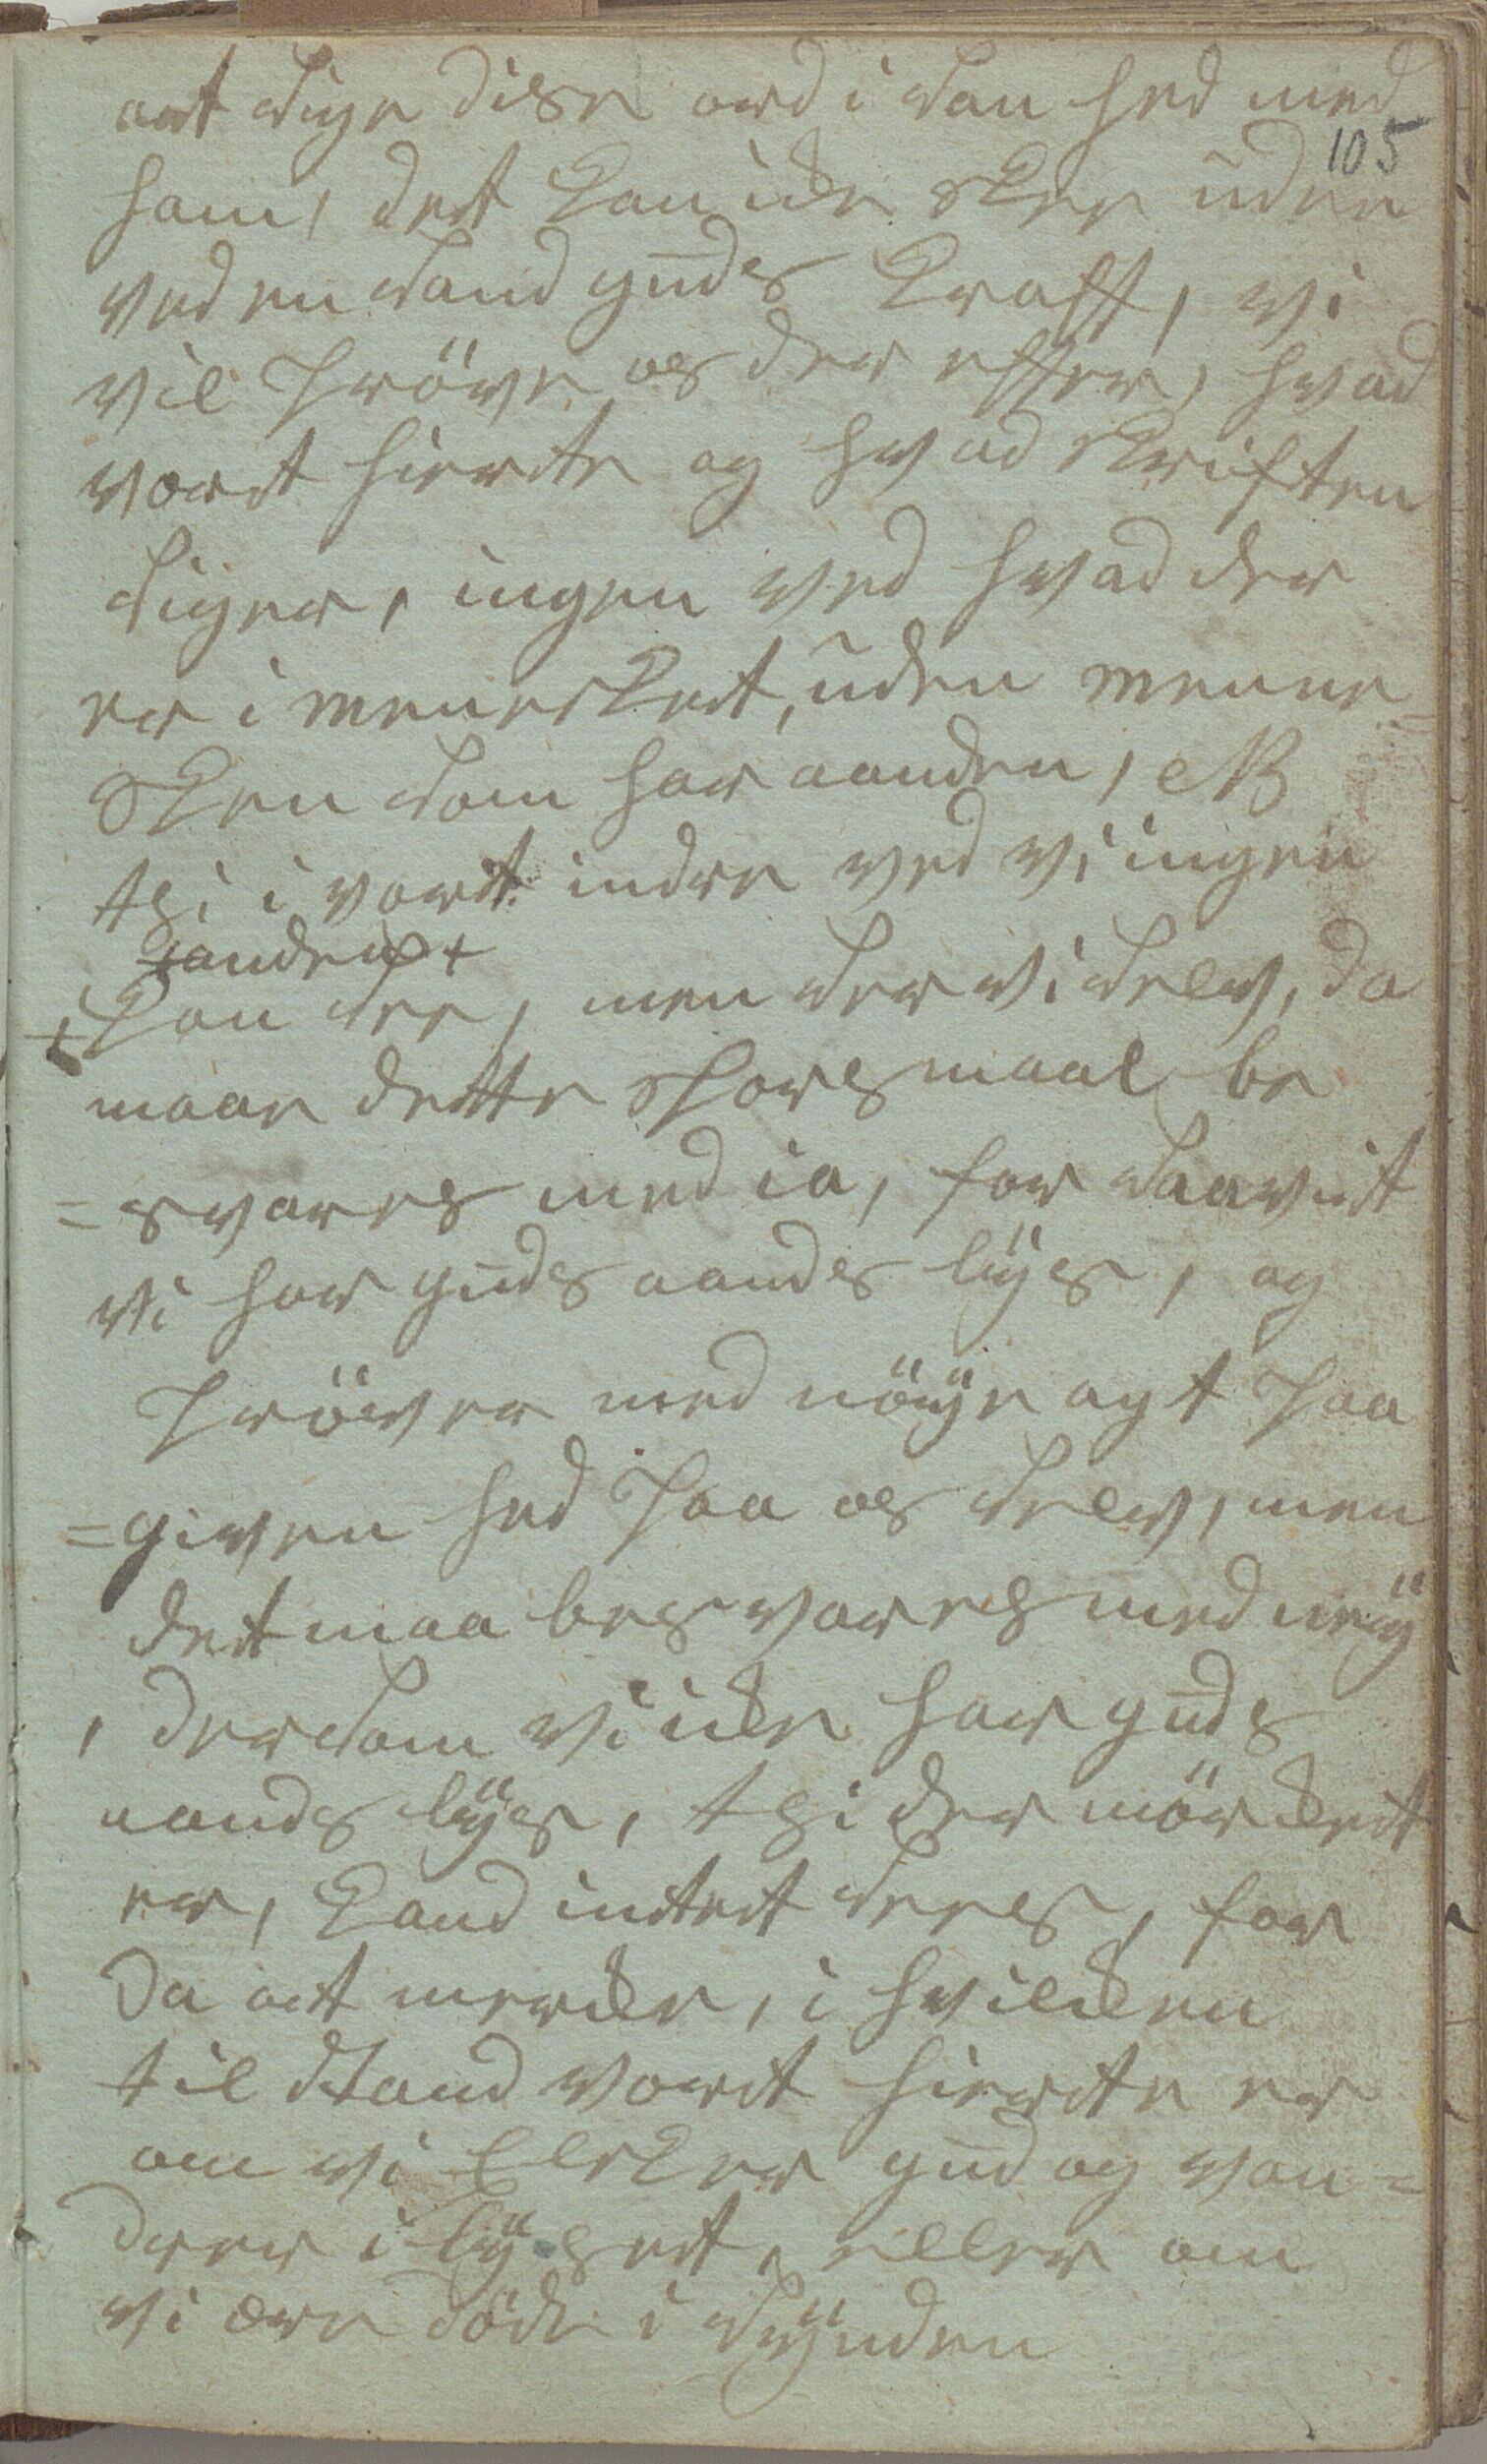 at sige disse ord i san hed med
105
ham, det kan icke skee uden
ved en sand guds kraft, vi
vil pröve os der efter, hvad
vort hierte og hvad skriften
siger, ingen ved hvad der
er i menesket, uden menne=
sken som har aanden, NB
thi i vort indre ved vi ingen
anden +
+ kan see, men ser vi selv, da
maae dette spörsmaal be
=svares med ia, for saavit
vi har guds aands lÿs, og
pröver med nöÿe agt paa
=given hed paa os selv, men
det maa besvares med neÿ
, dersom vi icke har guds
aands lÿs, thi der mörcket
er, kand intet sees, for
da at mercke, i hvilcken
til stand vort hierte er
om vi Elsker gud og van=
drer i lÿset, eller om
vi ere döde i sÿnden